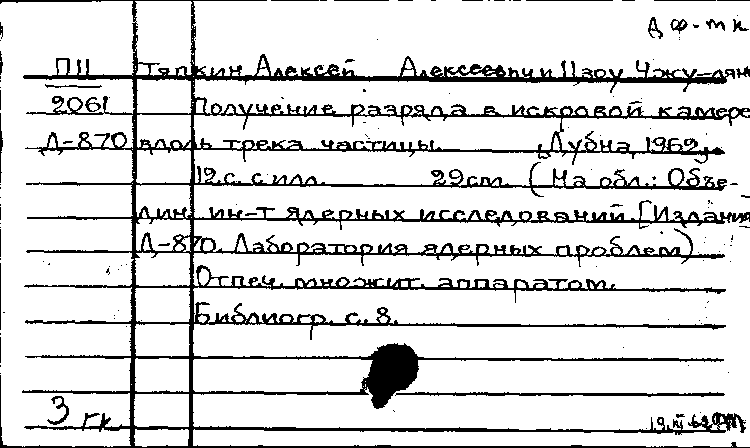 Д ф-т к
П11 Тяпкин, Алексей Алексеевич и Цзоу Чжу-лян
2061 Получение разряда в искровой камере
Д-870 вдоль трека частицы. Дубна, 1962.
12 с. с илл. 29 см. (На обл.: Объе-
дин. ин-т ядерных исследований. [Издания]
Д-870. Лаборатория ядерных проблем)
Отпеч. множит. аппаратом.
Библиогр. с. 8.
3 гк